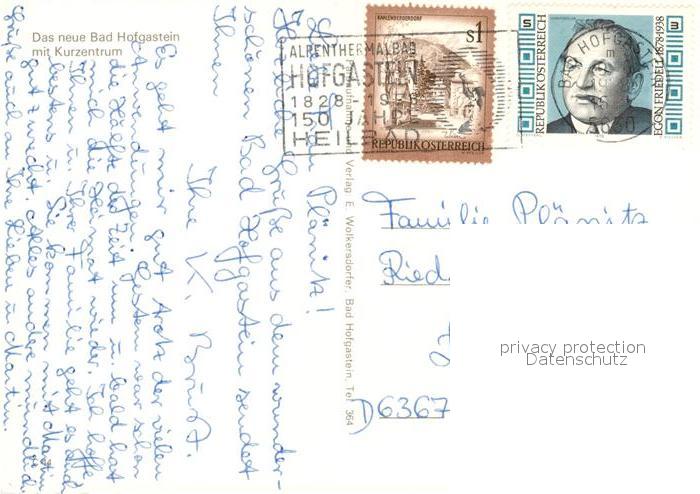 Das neue Bad Hofgastein
mit Kurzentrum
Plänitz!
Herzliche Grüße aus dem wunder-
schönen Bad Hofgastein sendet
Ihnen
Ihre K.
Es geht mir gut trotz der vielen
Anwendungen. Gestern war schon
die Hälfte der Zeit um u. bald hat
mich die wieder. Ich hoffe
Ihrer Familie geht es auch
bestens u. Sie kommen mit Martin
gut zurecht. Alles andere mündlich.
Grüße auch an Ihre lieben u. Martin.
Verlag E. Wolkersdorfer, Bad Hofgastein, Tel. 364
ALPENTHERMALBAD
HOFGASTEIN
1828-19
150 JAHRE
HEILBAD
KAHLENBERGERDORF
s1
REPUBLIK ÖSTERREICH
S 3
REPUBLIK ÖSTERREICH
EGON FRIEDELL 1878-1938
BAD HOFGASTEIN
Familie Plänitz
Ried
D6367
privacy protection
Datenschutz